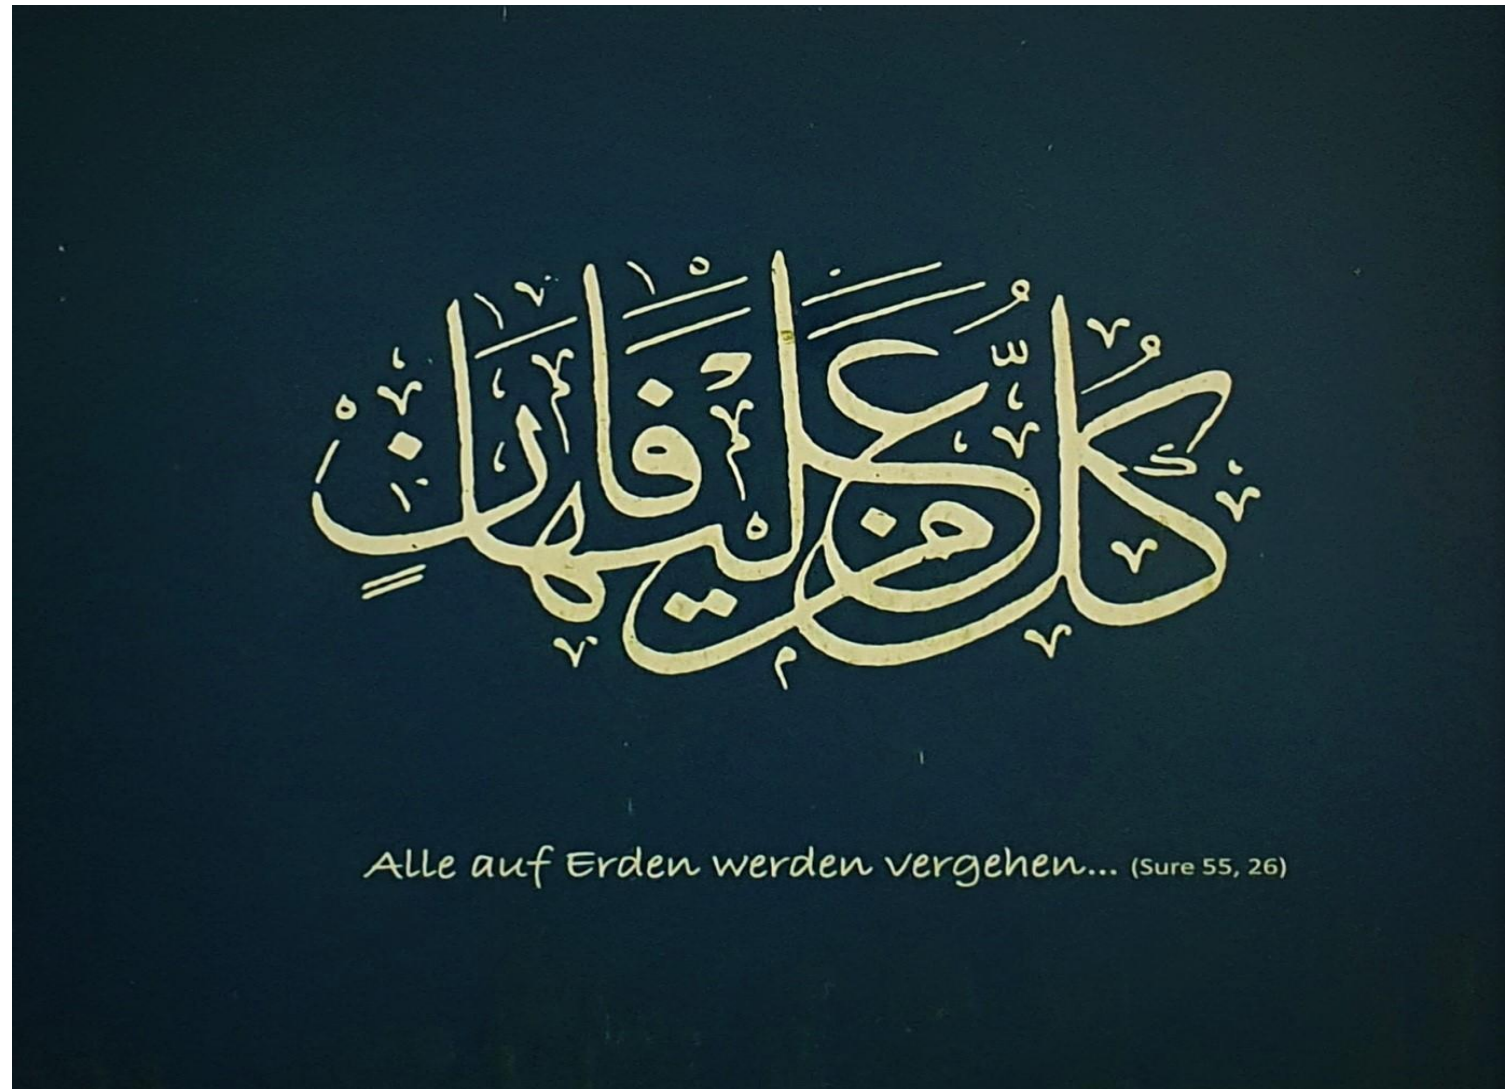 كُلُّ مَنْ عَلَيْهَا فَانٍ
Alle auf Erden werden vergehen... (Sure 55, 26)